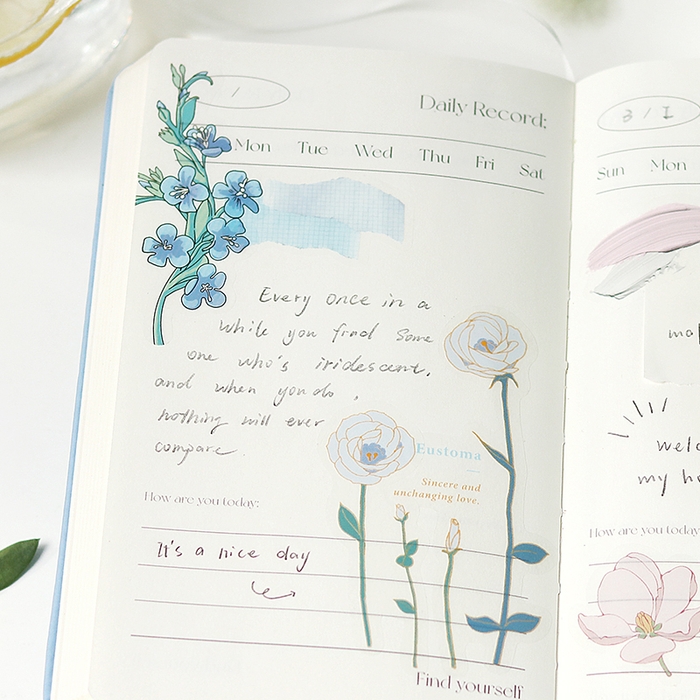 Daily Record:
Mon Tue Wed Thu Fri Sat
Every once in a
while you find some
one who's iridescent,
and when you do,
nothing will ever
compare.
Eustoma
Sincere and
unchanging love.
How are you today:
It's a nice day
Find yourself
3/1
Sun Mon
my
How are you today: